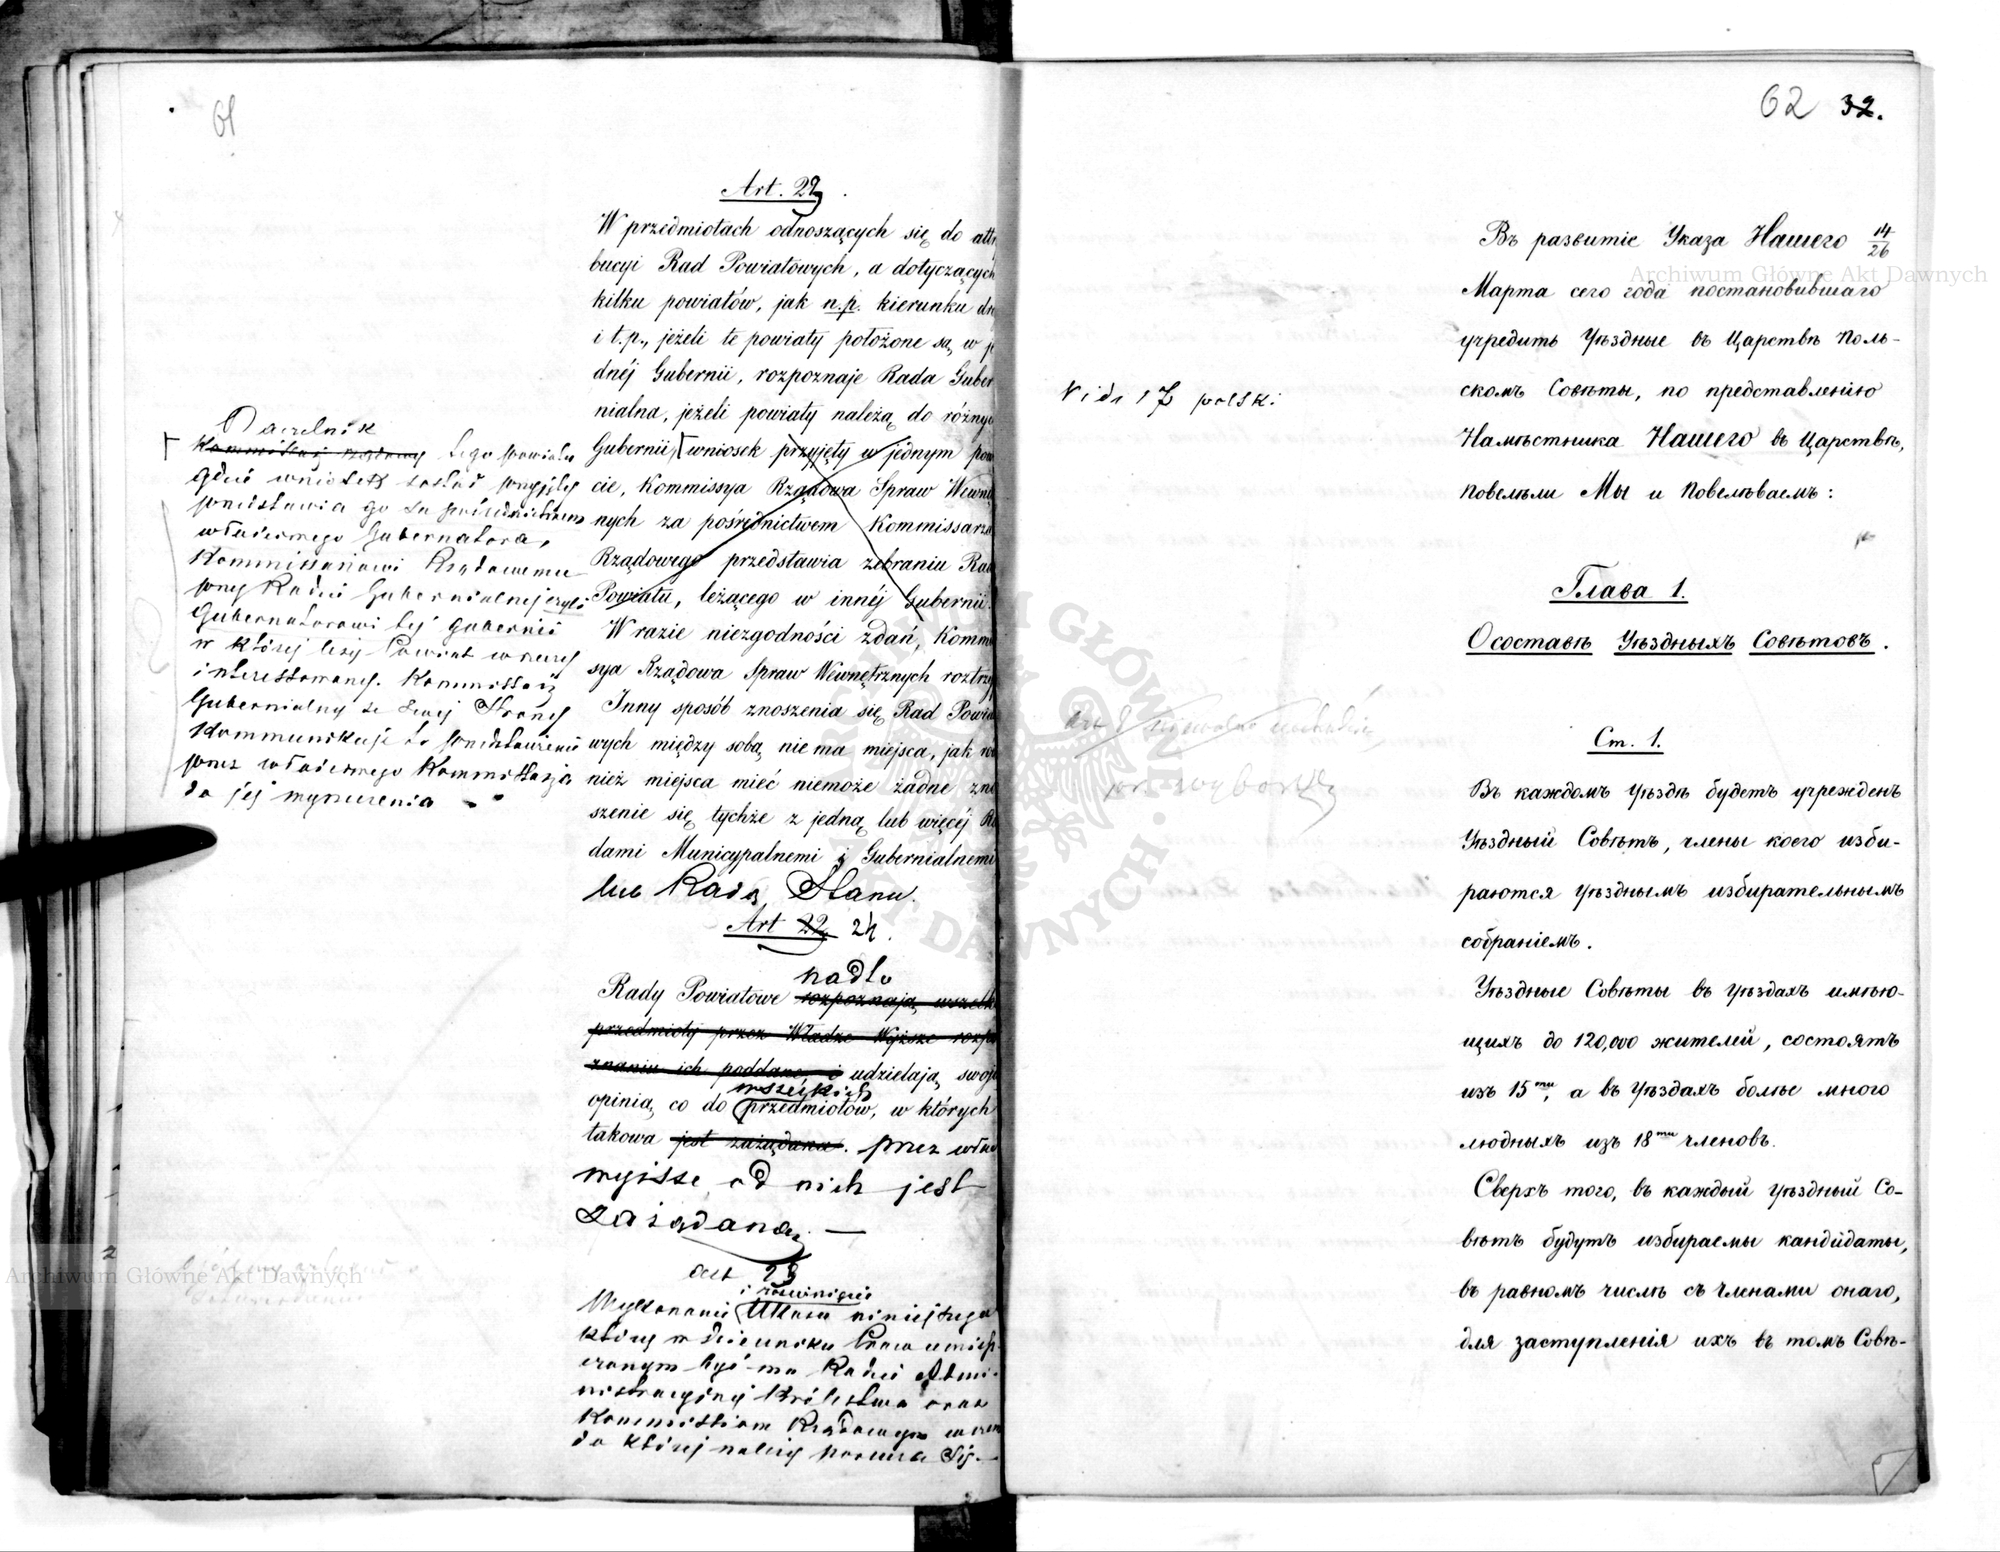 61
Art. 23
W przedmiotach odnoszących się do attr
bucyi Rad Powiatowych, a dotyczących
kilku powiatów, jak n.p. kierunku dr
i t.p., jeżeli te powiaty położone są, w j
dnéj Gubernii, rozpoznaje Rada Guber
nialna, jeżeli powiaty należą do różny
Gubernii, wniosek przyjęty w jednym pow
cie, Kommissya Rządowa Spraw Wewnę
nych za pośrednictwem Kommissarza
Rządowego przedstawia zebraniu Rad
Powiatu, leżącego w innéj Gubernii.
W razie niezgodności zdań, Kommi
sya Rządowa Spraw Wewnętrznych roztrzy
Inny sposób znoszenia się Rad Powia
wych między sobą, nie ma miejsca, jak ró
nież miejsca mieć niemoże żadne zno
szenie się tychże z jedną lub więcéj Ra
dami Municypalnemi i Gubernialnemi
lub Radą Stanu.
Art 22 24.
nadto
Rady Powiatowe rozpoznają wszelk
przedmioty przez Władze Wyższe rozpo
znaniu ich poddane i udzielają swoj
wszelkich
opinią co do przedmiotów, w których
takowa jest zażądana. przez wła
wyższe od nich jest
zażądana. —
art 23
i rozwinięcie
Wykonanie Ukazu niniejszego
który w dzienniku Praw umiesz
czonym być ma Radzie Admi-
nistracyjnej Królestwa oraz
Kommissiom Rządowym w czem
do której należy porucza się. —
Naczelnik
Kommissarz rządowy tego powiatu
gdzie wniosek został przyjęty
przedstawia go za pośrednictwem
właściwego Gubernatora,
Kommissarzowi Rządowemu
przy Radzie Gubernialnej czyli
Gubernatorowi tej gubernii
w której leży Powiat w rzeczy
interessowany. Kommissarz
Gubernialny ze swej strony
Kommunikuje to przedstawienie
przez właściwego Kommissarza
do jej wyrzeczenia
62 32.
Vide 17 polski
Въ развитіе Указа Нашего 14/26
Марта сего года постановившаго
учредить Уѣздные въ Царствѣ Поль-
скомъ Совѣты, по представленію
Намѣстника Нашего въ Царствѣ,
повелѣли Мы и Повелѣваемъ:
Глава 1.
О составѣ Уѣздныхъ Совѣтовъ.
Ст. 1.
Въ каждомъ Уѣздѣ будетъ учрежденъ
Уѣздный Совѣтъ, члены коего изби-
раются Уѣзднымъ избирательнымъ
собраніемъ.
Уѣздные Совѣты въ Уѣздахъ имѣю-
щихъ до 120,000 жителей, состоятъ
изъ 15ти, а въ Уѣздахъ болѣе много
людныхъ изъ 18ти членовъ.
Сверхъ того, въ каждый Уѣздный Со-
вѣтъ будутъ избираемы кандидаты,
въ равномъ числѣ съ членами онаго,
для заступленія ихъ въ томъ Совѣ-
Archiwum Główne Akt Dawnych
Archiwum Główne Akt Dawnych
ARCHIWUM GŁÓWNE AKT DAWNYCH